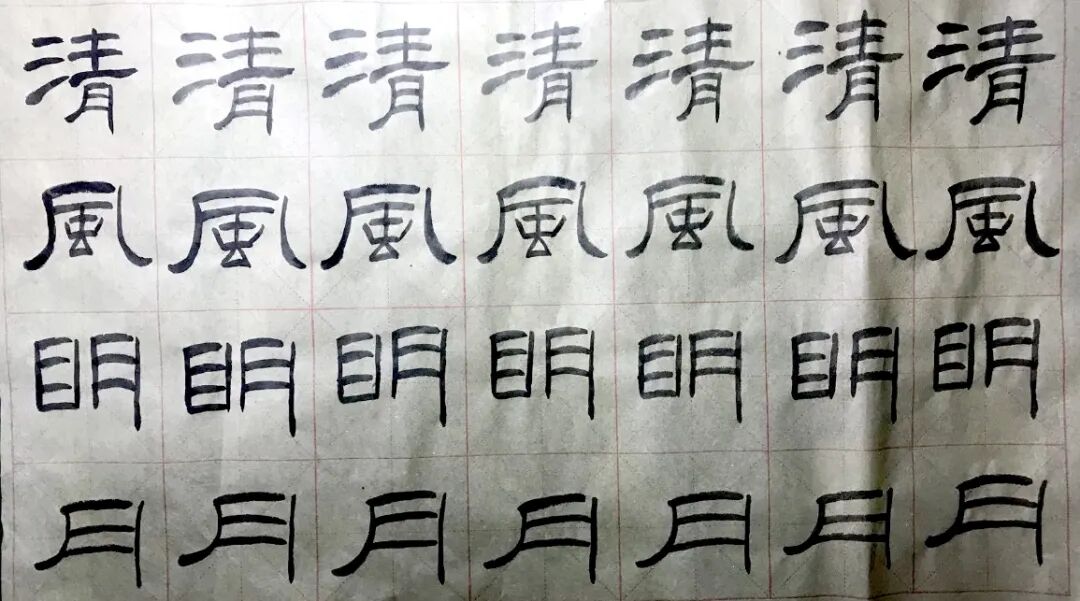 清清清清清清清
風風風風風風風
明明明明明明明
月月月月月月月